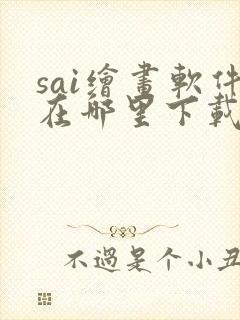 sai繪畫軟件
在哪里下載
不過是个小丑